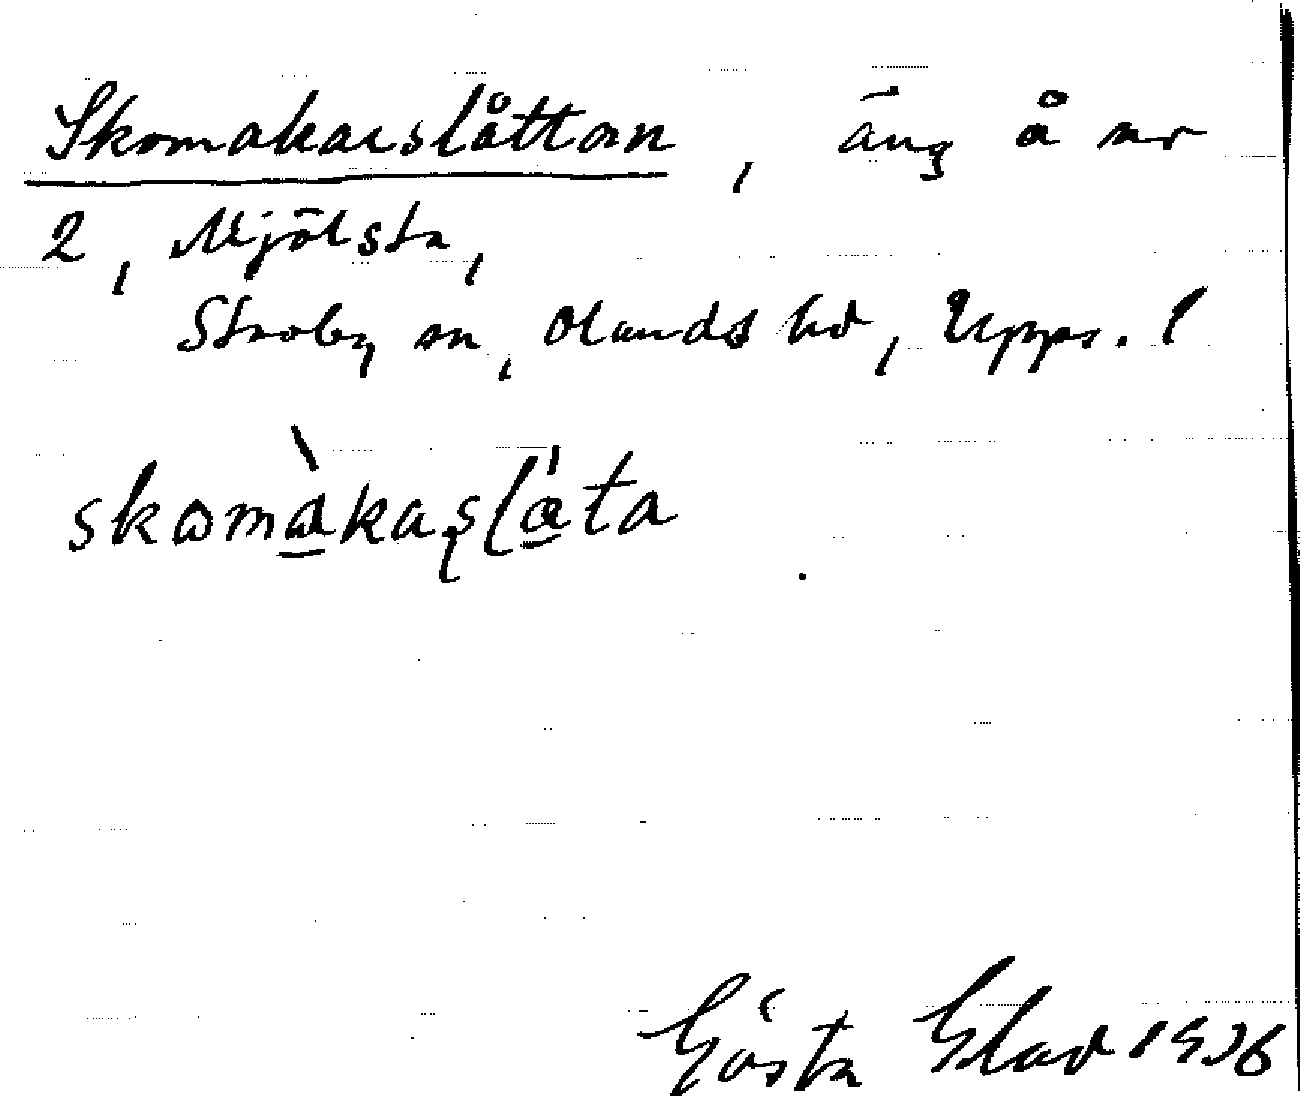 Skomakarslåttan, äng å nr
2, Mjölsta,
Skoby sn, Olands hd, Upps. l
skomàkaslåta
Gösta Elad 1936